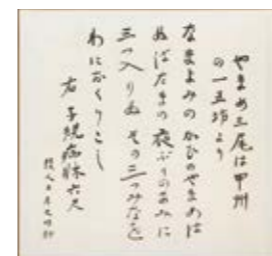 やまめ三尾は甲州
の一五坊より
なまよみのかひのやまめは
ぬばたまの夜ぶりのあみに
三つ入りぬその三つみなを
わにおくりこし
右 子規病牀六尺